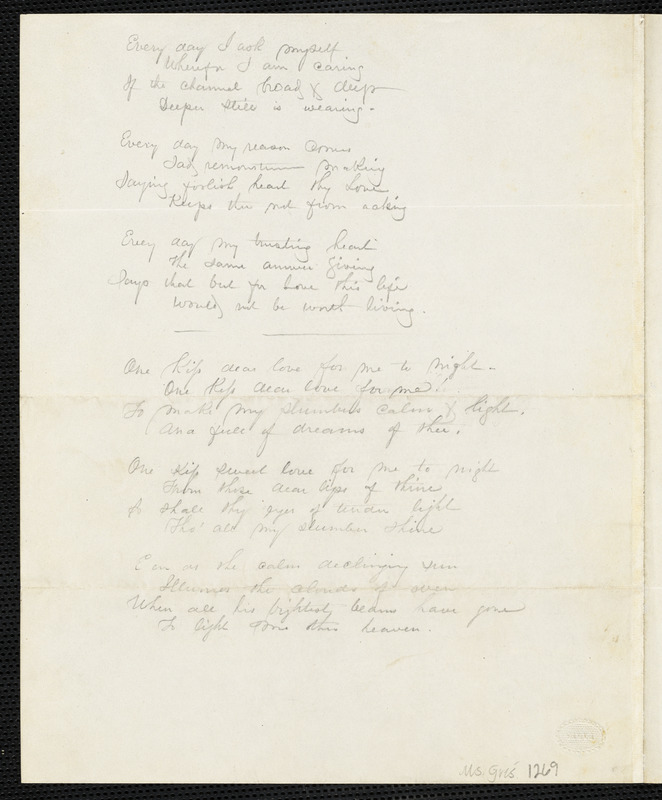 Every day I ask myself
Wherefor I am caring
If the channel broad & deep
Deeper still is wearing.
Every day my reason comes
Sad remonstrance making
Saying foolish heart thy love
Keeps thee not from aching
Every day my trusting heart
The same answer giving
Says that but for Love this life
Would not be worth living.
One Kiss dear love for me to night.
One Kiss dear love for me!
To make my slumbers calm & light.
And full of dreams of thee.
One Kiss sweet love for me to night
From those dear lips of thine
So shall thy eyes of tender light
Tho' all my slumber shine
E'en as the calm declining sun
Illumes the clouds of even
When all his brightest beams have gone
To light some other heaven.
Ms. Gris 1269